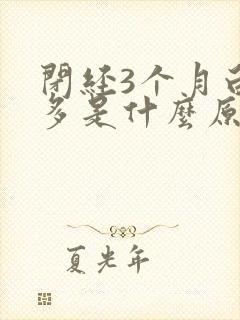 閉經3个月白
多是什麼原
夏光年